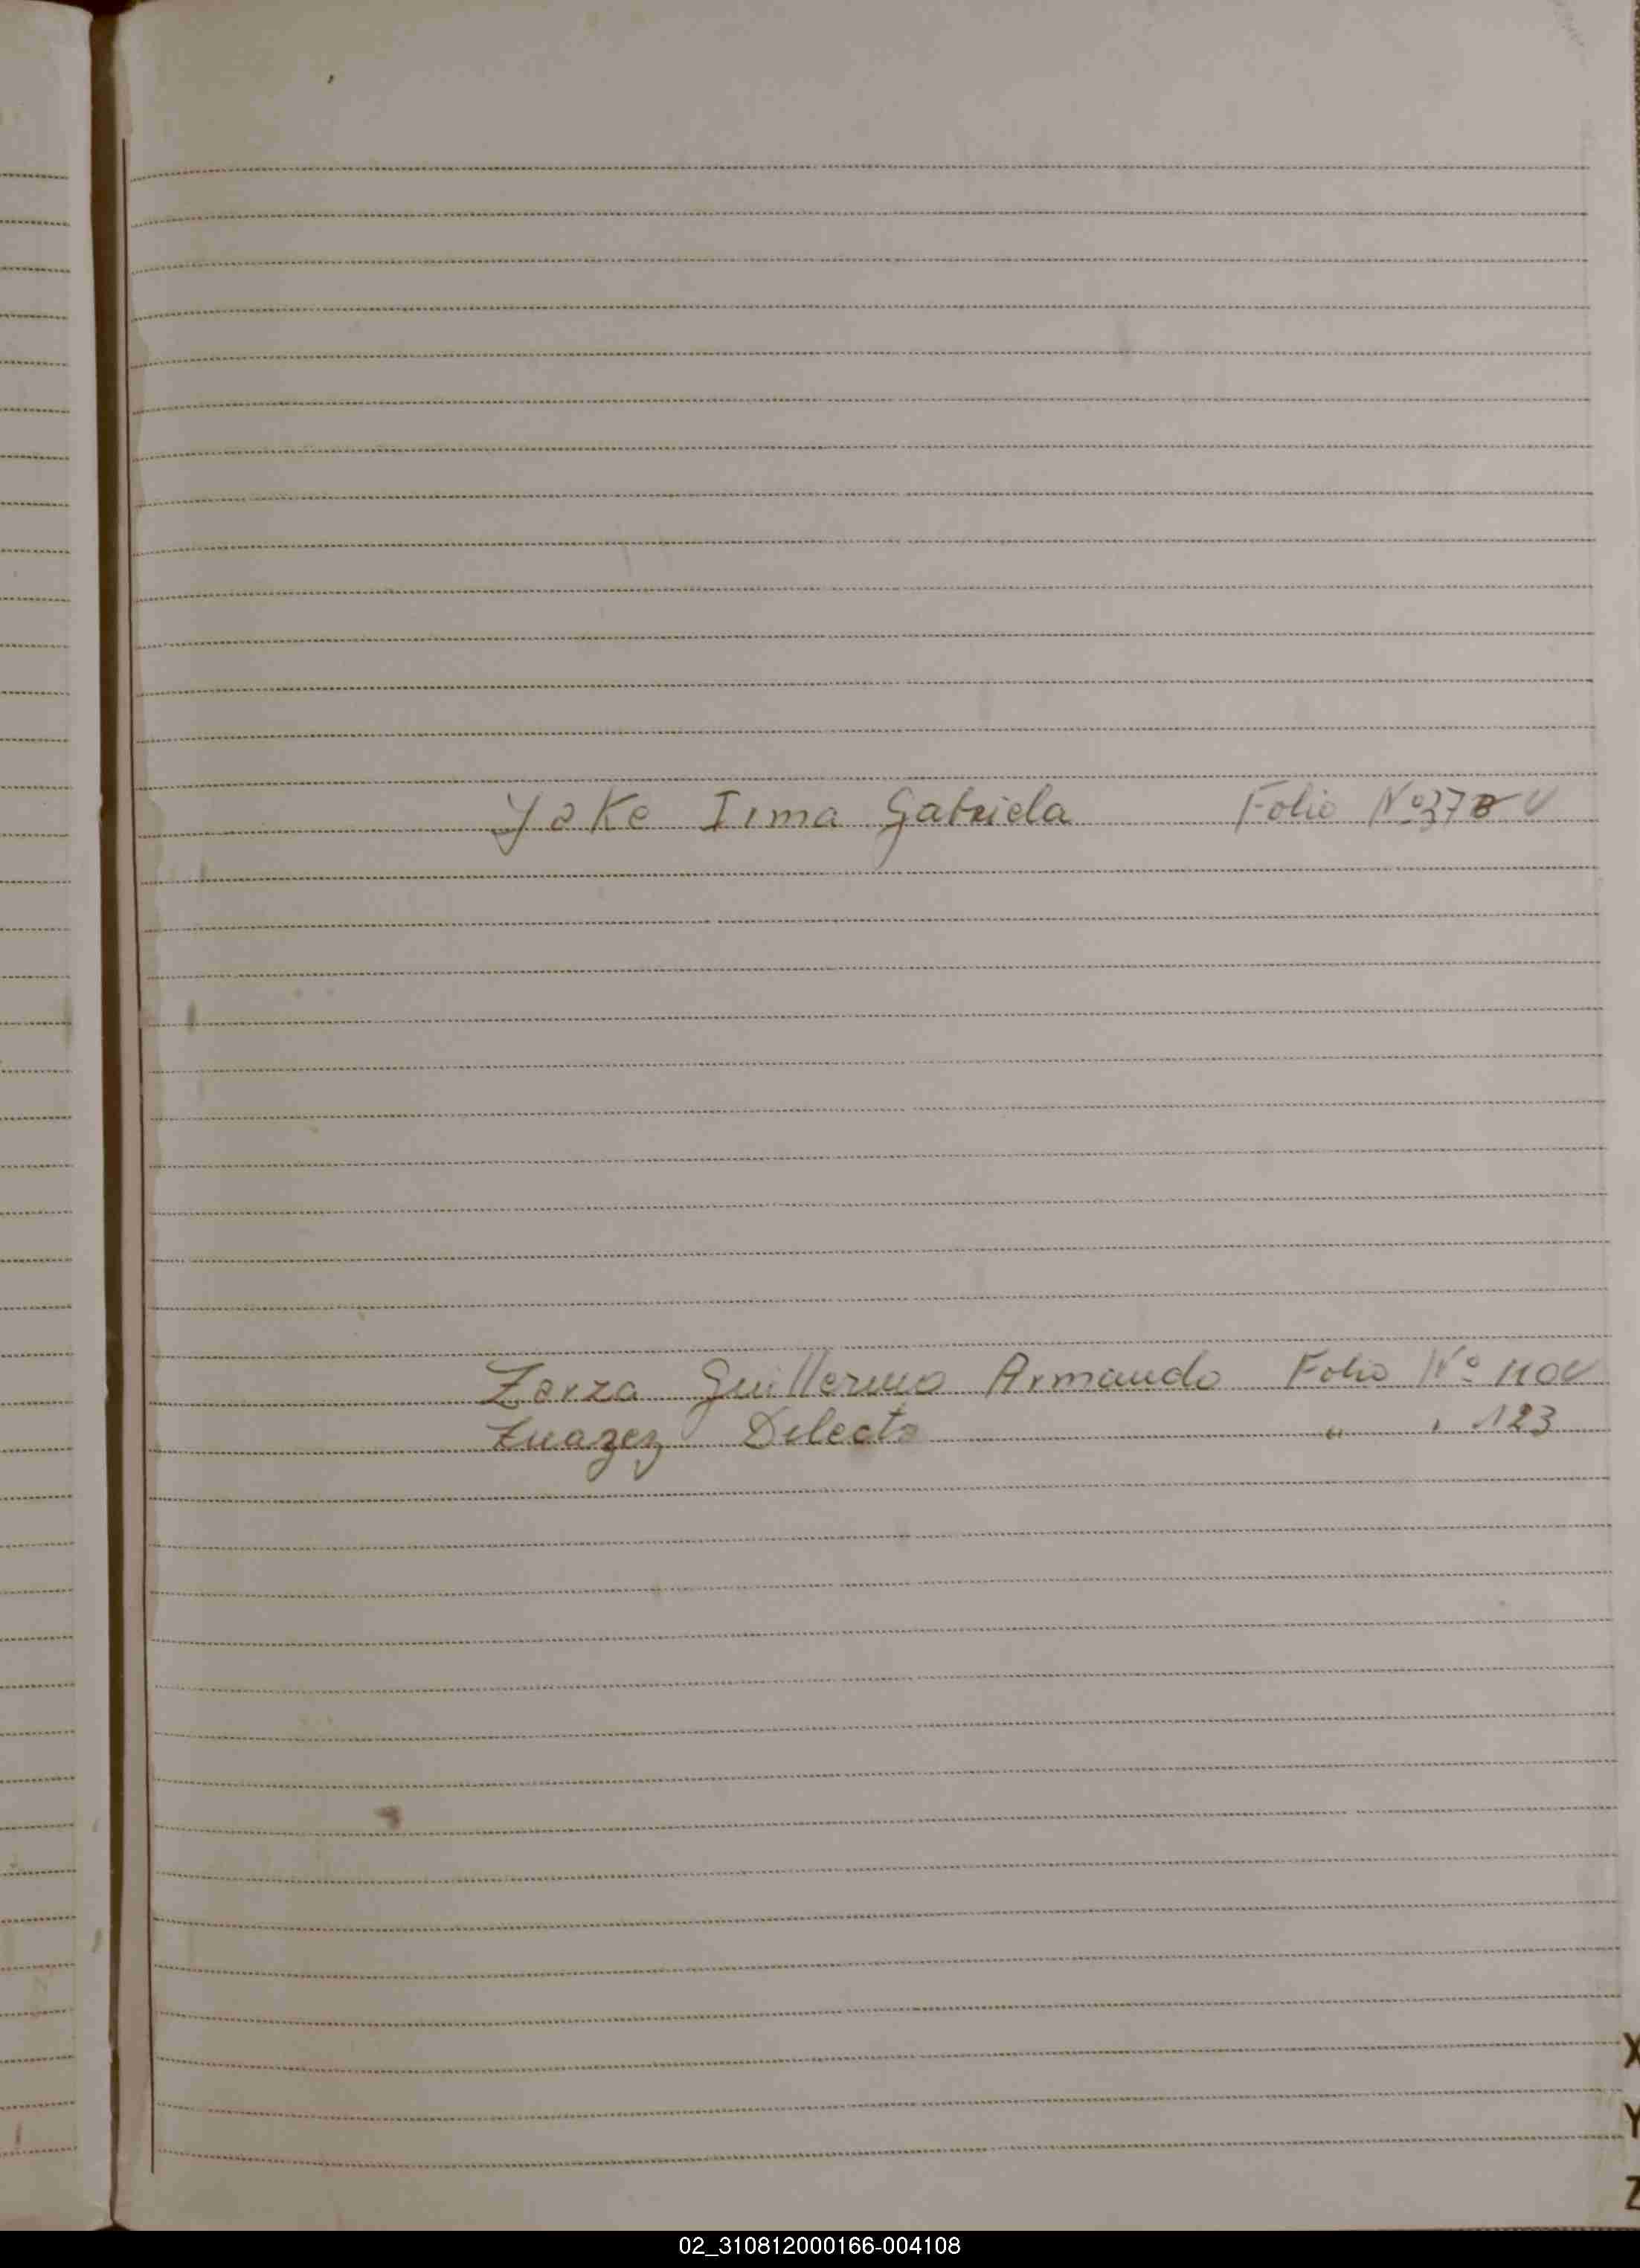 Yake Irma Gabriela Folio Nº 378 V
Zarza Guillermo Armando Folio Nº 110V
Zuazez Delecto " " 123
X
Y
Z
02_310812000166-004108